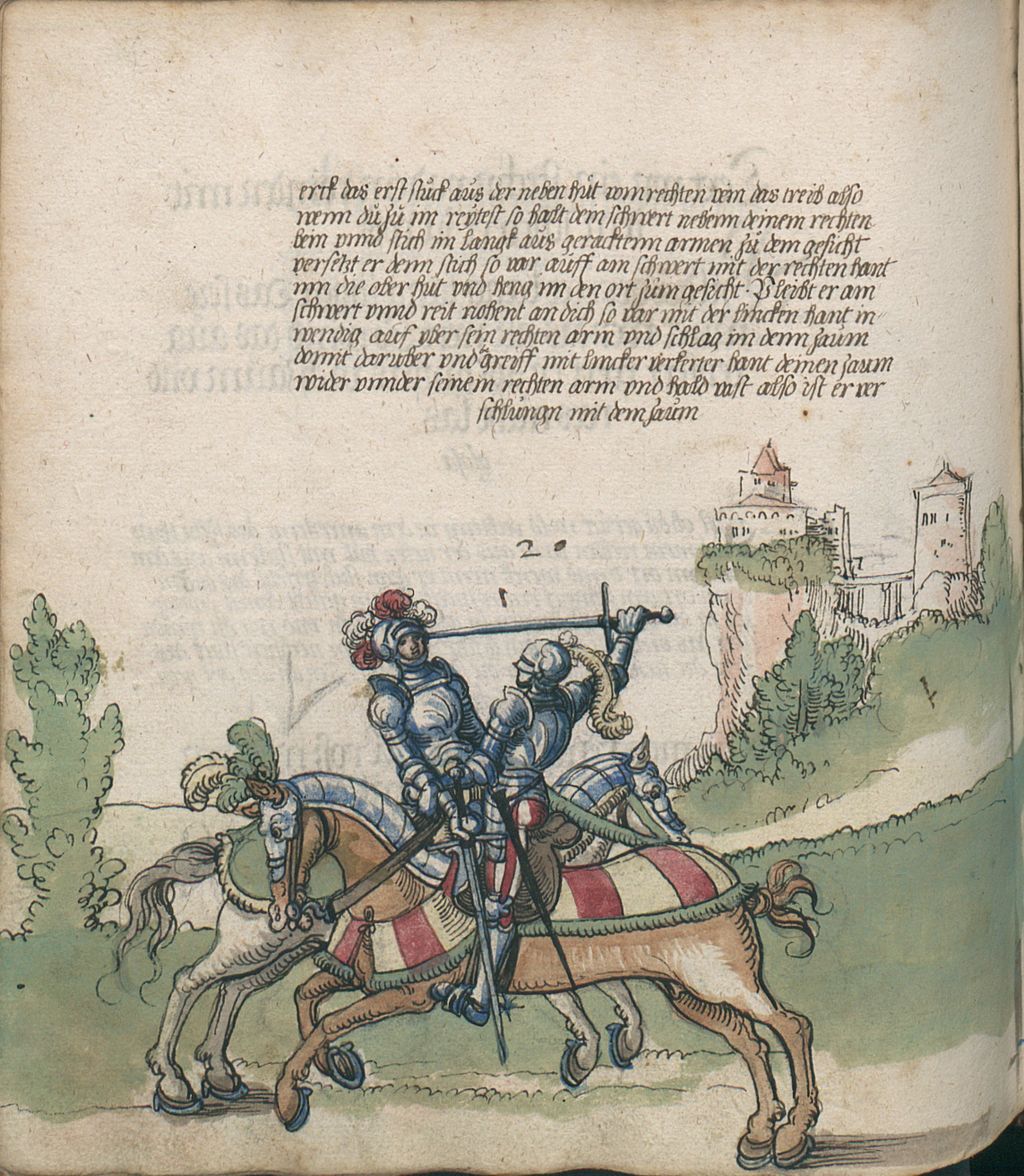 erck das erst stuck aus der neben hut vom rechten pein das treib also
wenn du zu im reytest so halt dein schwert nebenn deinem rechten
bein vnnd stich im langk aus geracktenn armen zu dem gesicht
versetzt er denn stich so var auff am schwert mit der rechten hant
inn die ober hut vnd heng im den ort zum gesicht · Pleibt er am
schwert vnnd reit nohent an dich so var mit der lincken hant in
wendig auf vber sein rechten arm vnd schlag im denn zaum
domit daruber vnd greiff mit lincker verkerter hant deinen zaum
wider vnnder seinem rechten arm vnd hald vast also ist er ver
schlungn mit dem zaum
20
1